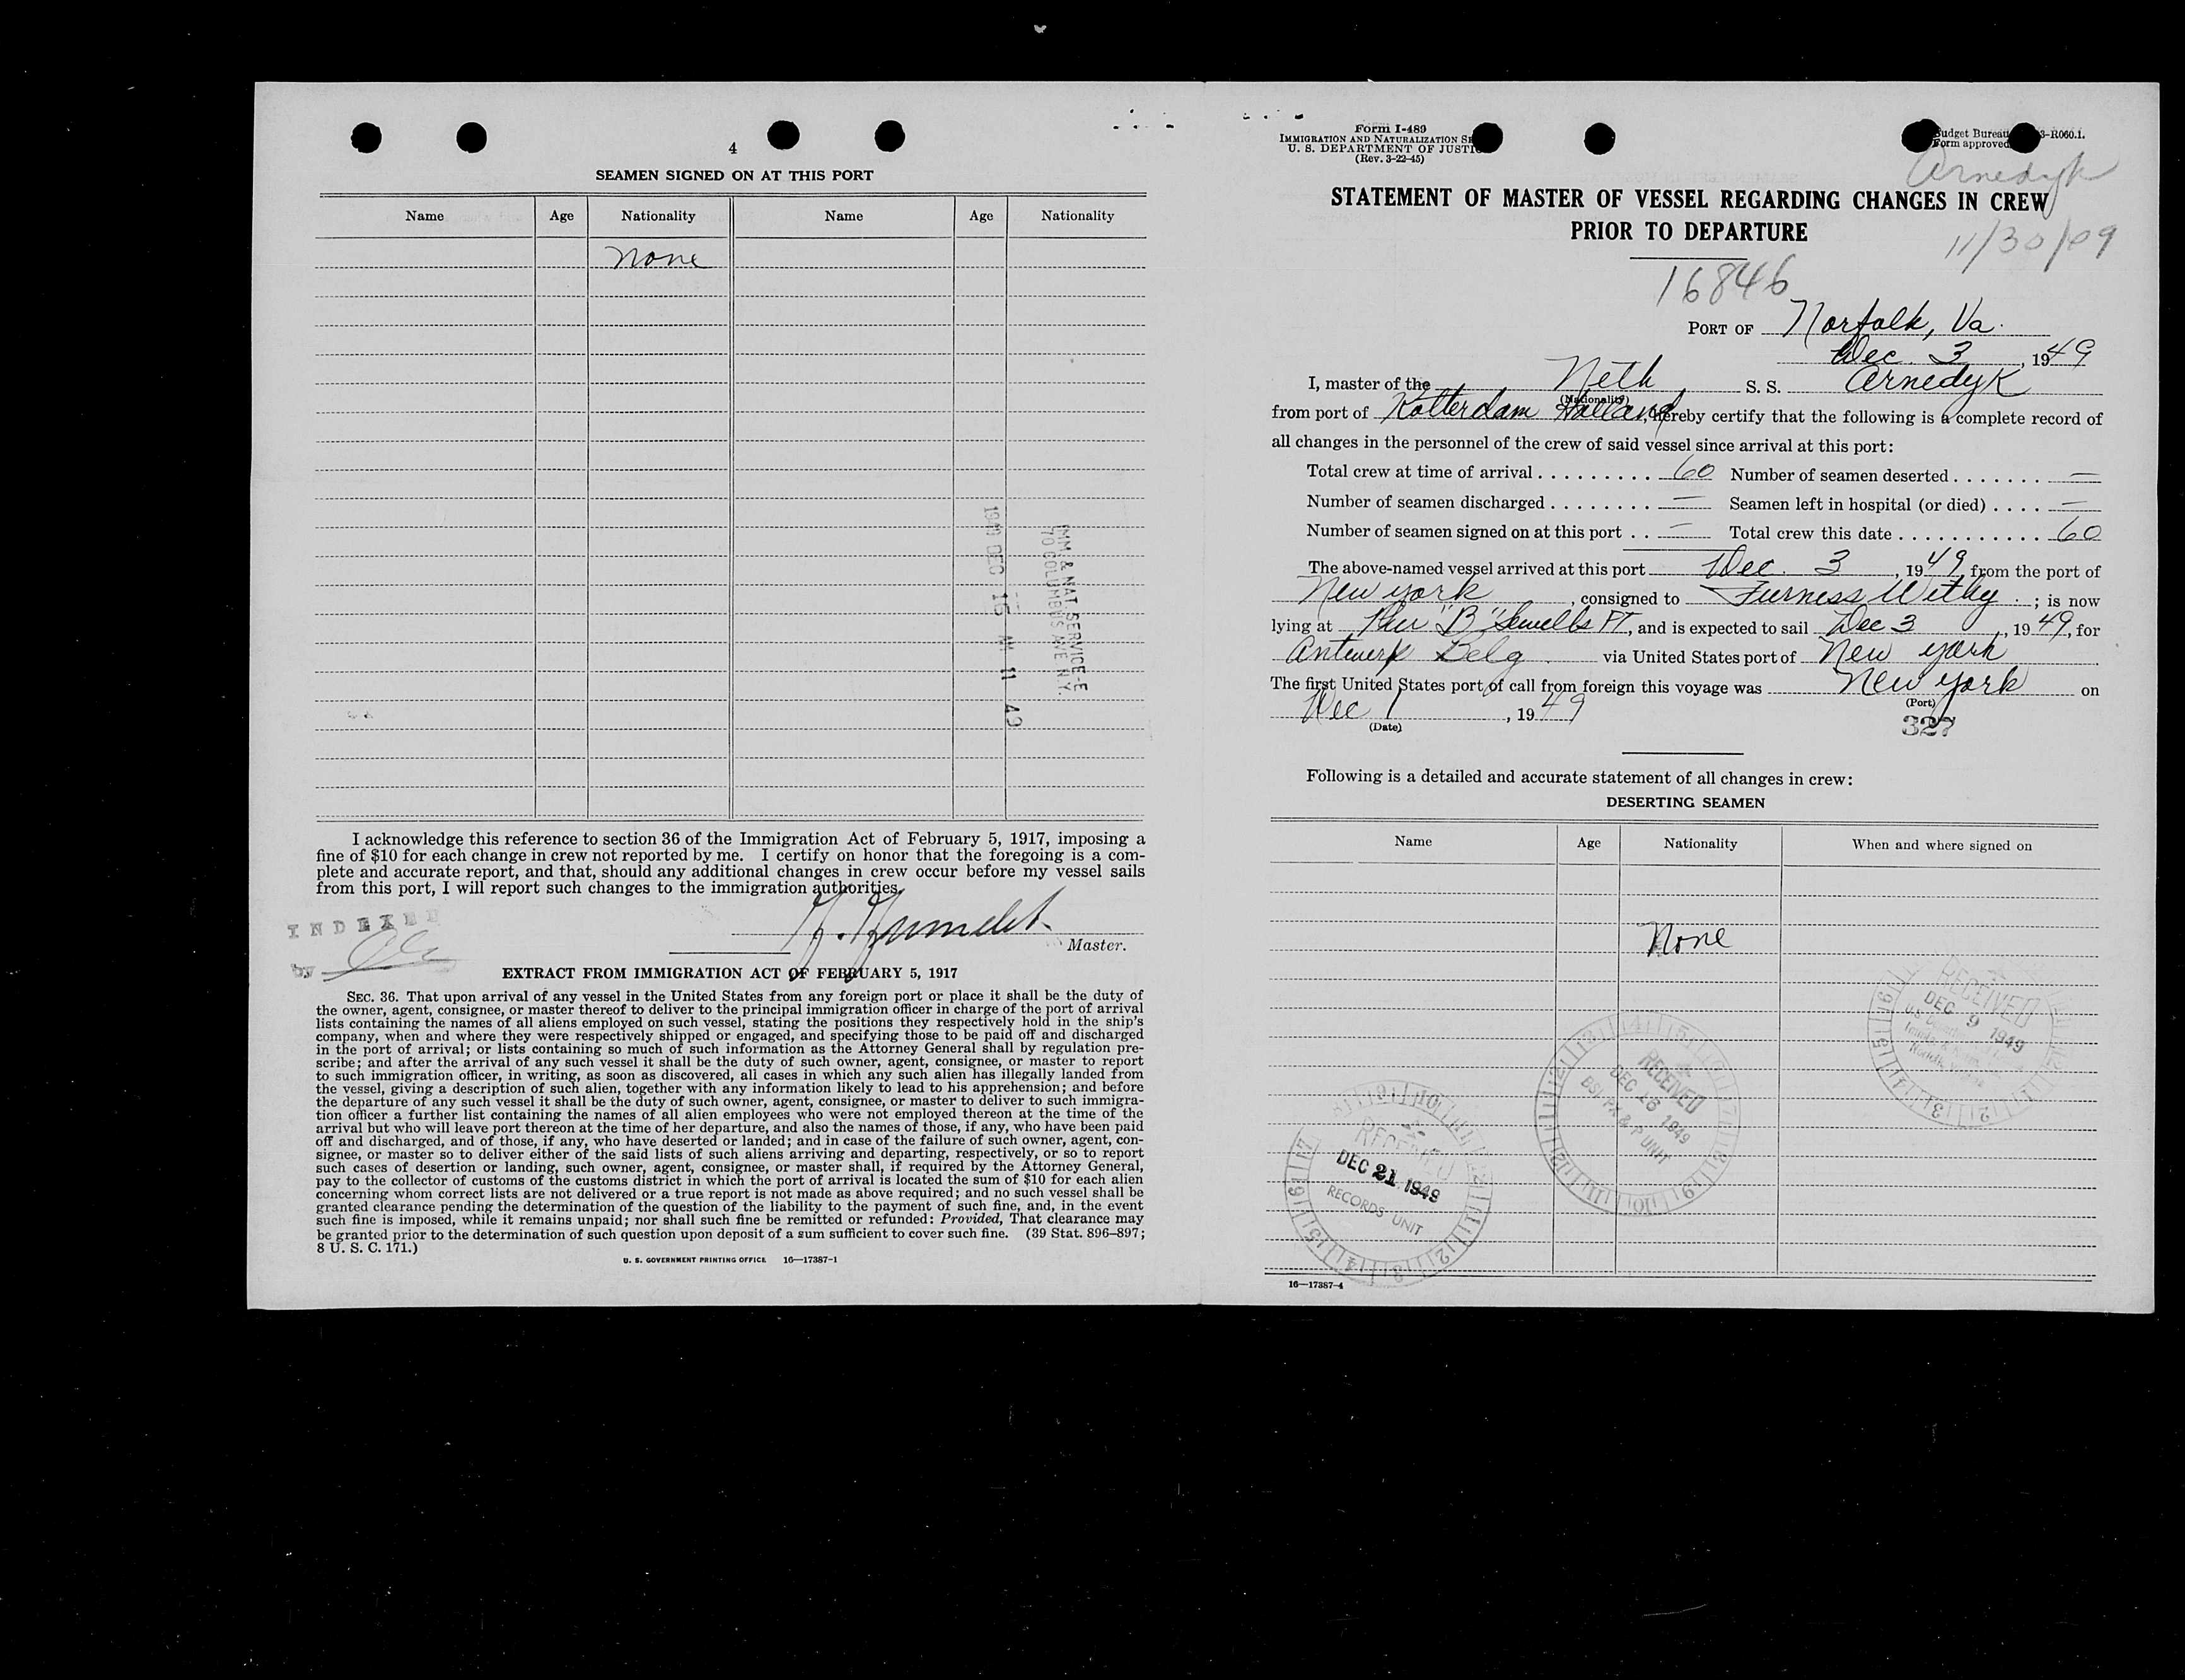 4
SEAMEN SIGNED ON AT THIS PORT
Name Age Nationality Name Age Nationality
None
IMM. & NAT. SERVICE-E
70 COLUMBUS AVE N.Y.
1949 DEC 15 AM 11 49
I acknowledge this reference to section 36 of the Immigration Act of February 5, 1917, imposing a
fine of $10 for each change in crew not reported by me. I certify on honor that the foregoing is a com-
plete and accurate report, and that, should any additional changes in crew occur before my vessel sails
from this port, I will report such changes to the immigration authorities.
INDEXED
by
Master.
EXTRACT FROM IMMIGRATION ACT OF FEBRUARY 5, 1917
SEC. 36. That upon arrival of any vessel in the United States from any foreign port or place it shall be the duty of
the owner, agent, consignee, or master thereof to deliver to the principal immigration officer in charge of the port of arrival
lists containing the names of all aliens employed on such vessel, stating the positions they respectively hold in the ship's
company, when and where they were respectively shipped or engaged, and specifying those to be paid off and discharged
in the port of arrival; or lists containing so much of such information as the Attorney General shall by regulation pre-
scribe; and after the arrival of any such vessel it shall be the duty of such owner, agent, consignee, or master to report
to such immigration officer, in writing, as soon as discovered, all cases in which any such alien has illegally landed from
the vessel, giving a description of such alien, together with any information likely to lead to his apprehension; and before
the departure of any such vessel it shall be the duty of such owner, agent, consignee, or master to deliver to such immigra-
tion officer a further list containing the names of all alien employees who were not employed thereon at the time of the
arrival but who will leave port thereon at the time of her departure, and also the names of those, if any, who have been paid
off and discharged, and of those, if any, who have deserted or landed; and in case of the failure of such owner, agent, con-
signee, or master so to deliver either of the said lists of such aliens arriving and departing, respectively, or so to report
such cases of desertion or landing, such owner, agent, consignee, or master shall, if required by the Attorney General,
pay to the collector of customs of the customs district in which the port of arrival is located the sum of $10 for each alien
concerning whom correct lists are not delivered or a true report is not made as above required; and no such vessel shall be
granted clearance pending the determination of the question of the liability to the payment of such fine, and, in the event
such fine is imposed, while it remains unpaid; nor shall such fine be remitted or refunded: Provided, That clearance may
be granted prior to the determination of such question upon deposit of a sum sufficient to cover such fine. (39 Stat. 896–897;
8 U. S. C. 171.)
U. S. GOVERNMENT PRINTING OFFICE 16—17387-1
Form I-489
IMMIGRATION AND NATURALIZATION
U. S. DEPARTMENT OF JUSTICE
(Rev. 3-22-45)
Budget Bureau 3-R060.1.
Form approved
Arnedyk
STATEMENT OF MASTER OF VESSEL REGARDING CHANGES IN CREW
PRIOR TO DEPARTURE
11/30/09
16846
PORT OF Norfolk, Va.
Dec. 3, 1949
I, master of the Neth S. S. Arnedyk
(Nationality)
from port of Rotterdam Holland, hereby certify that the following is a complete record of
all changes in the personnel of the crew of said vessel since arrival at this port:
Total crew at time of arrival . . . . . . . . . . 60 Number of seamen deserted . . . . . . . —
Number of seamen discharged . . . . . . . . — Seamen left in hospital (or died) . . . . —
Number of seamen signed on at this port . . — Total crew this date . . . . . . . . . . . 60
The above-named vessel arrived at this port Dec. 3, 1949, from the port of
New York, consigned to Furness Withy; is now
lying at Pier "B" Sewells Pt, and is expected to sail Dec 3, 1949, for
Antwerp Belg. via United States port of New York
The first United States port of call from foreign this voyage was New York on
(Port)
Dec 1, 1949
(Date)
327
Following is a detailed and accurate statement of all changes in crew:
DESERTING SEAMEN
Name Age Nationality When and where signed on
None
RECEIVED
DEC 9 1949
RECEIVED
DEC 16 1949
RECEIVED
DEC 21 1949
RECORDS UNIT
16—17387-4